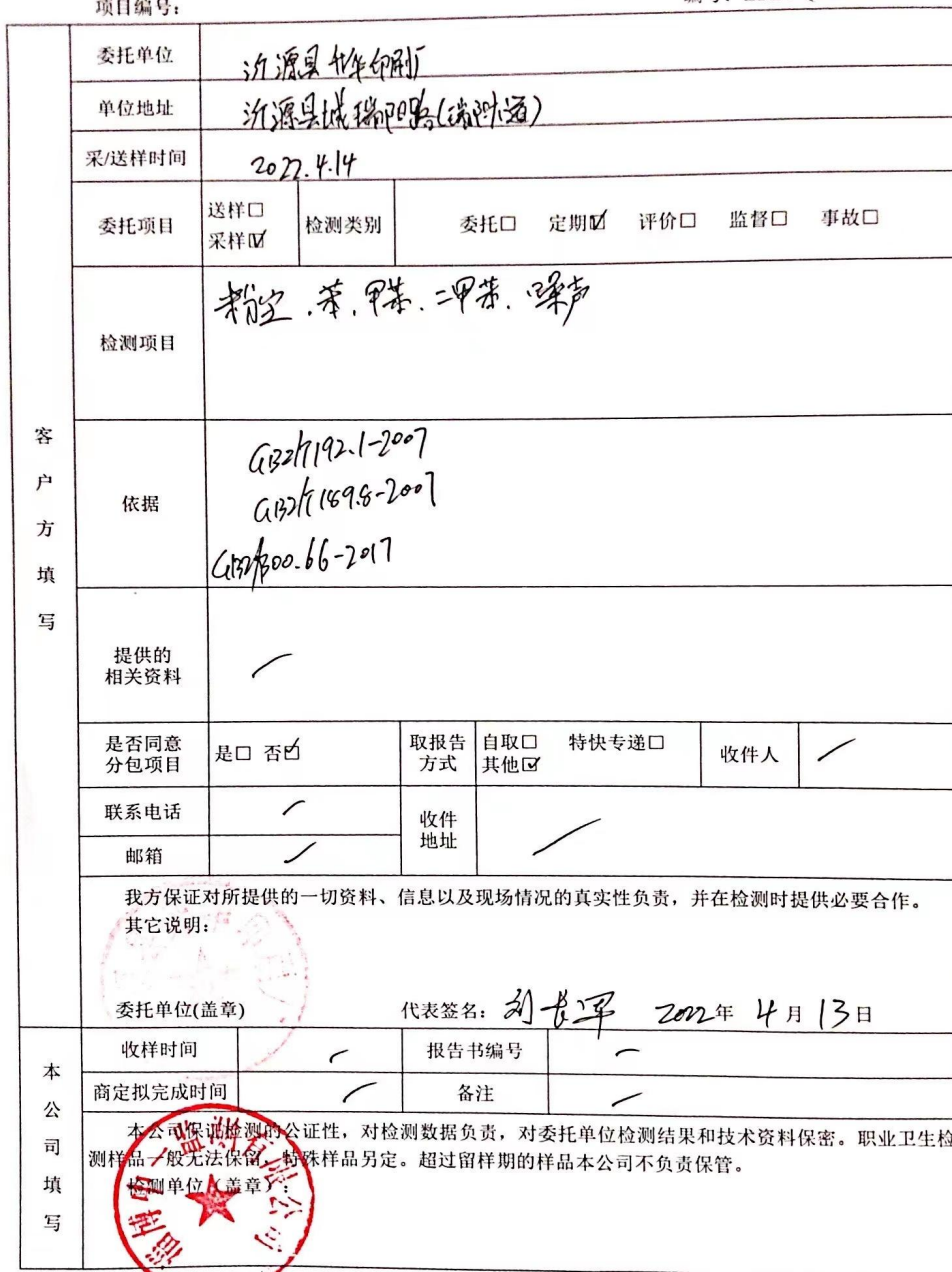 项目编号：
委托单位 沂源县华印刷厂
单位地址 沂源县城瑞阳路(瑞阳大道)
采/送样时间 2022.4.14
委托项目 送样□ 采样☑ 检测类别 委托□ 定期☑ 评价□ 监督□ 事故□
检测项目 粉尘、苯、甲苯、二甲苯、噪声
客户方填写
依据 GBZ/T192.1-2007
GBZ/T189.8-2007
GBZ/T300.66-2017
提供的
相关资料 /
是否同意
分包项目 是□ 否☑ 取报告
方式 自取□ 特快专递□
其他☑ 收件人 /
联系电话 / 收件
地址 /
邮箱 /
我方保证对所提供的一切资料、信息以及现场情况的真实性负责，并在检测时提供必要合作。
其它说明：
委托单位(盖章) 代表签名：刘长军 2022年4月13日
本公司填写
收样时间 / 报告书编号 /
商定拟完成时间 / 备注 /
本公司保证检测的公证性，对检测数据负责，对委托单位检测结果和技术资料保密。职业卫生检
测样品一般无法保留，特殊样品另定。超过留样期的样品本公司不负责保管。
检测单位（盖章）：